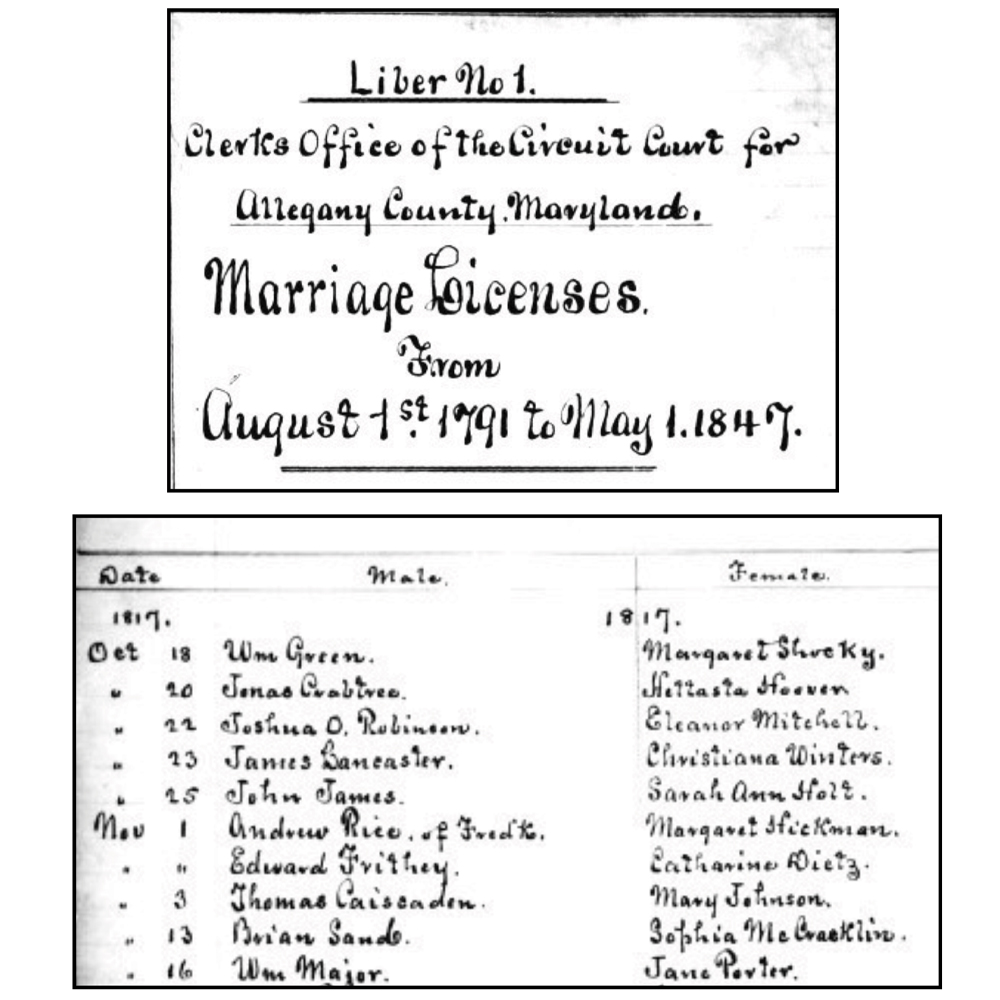 Liber No 1.
Clerks Office of the Circuit Court for
Allegany County, Maryland.
Marriage Licenses.
From
August 1st. 1791 to May 1. 1847.
Date Male. Female.
1817. 1817.
Oct 18 Wm Green. Margaret Shocky.
" 20 Jonas Crabtree. Hettasta Hoover
" 22 Joshua O. Robinson. Eleanor Mitchell.
" 23 James Lancaster. Christiana Winters.
" 25 John James. Sarah Ann Holt.
Nov 1 Andrew Rice, of Fredk. Margaret Hickman.
" " Edward Frithey. Catharine Dietz.
" 3 Thomas Caiscaden. Mary Johnson.
" 13 Brian Sand. Sophia McCracklin.
" 16 Wm Major. Jane Porter.